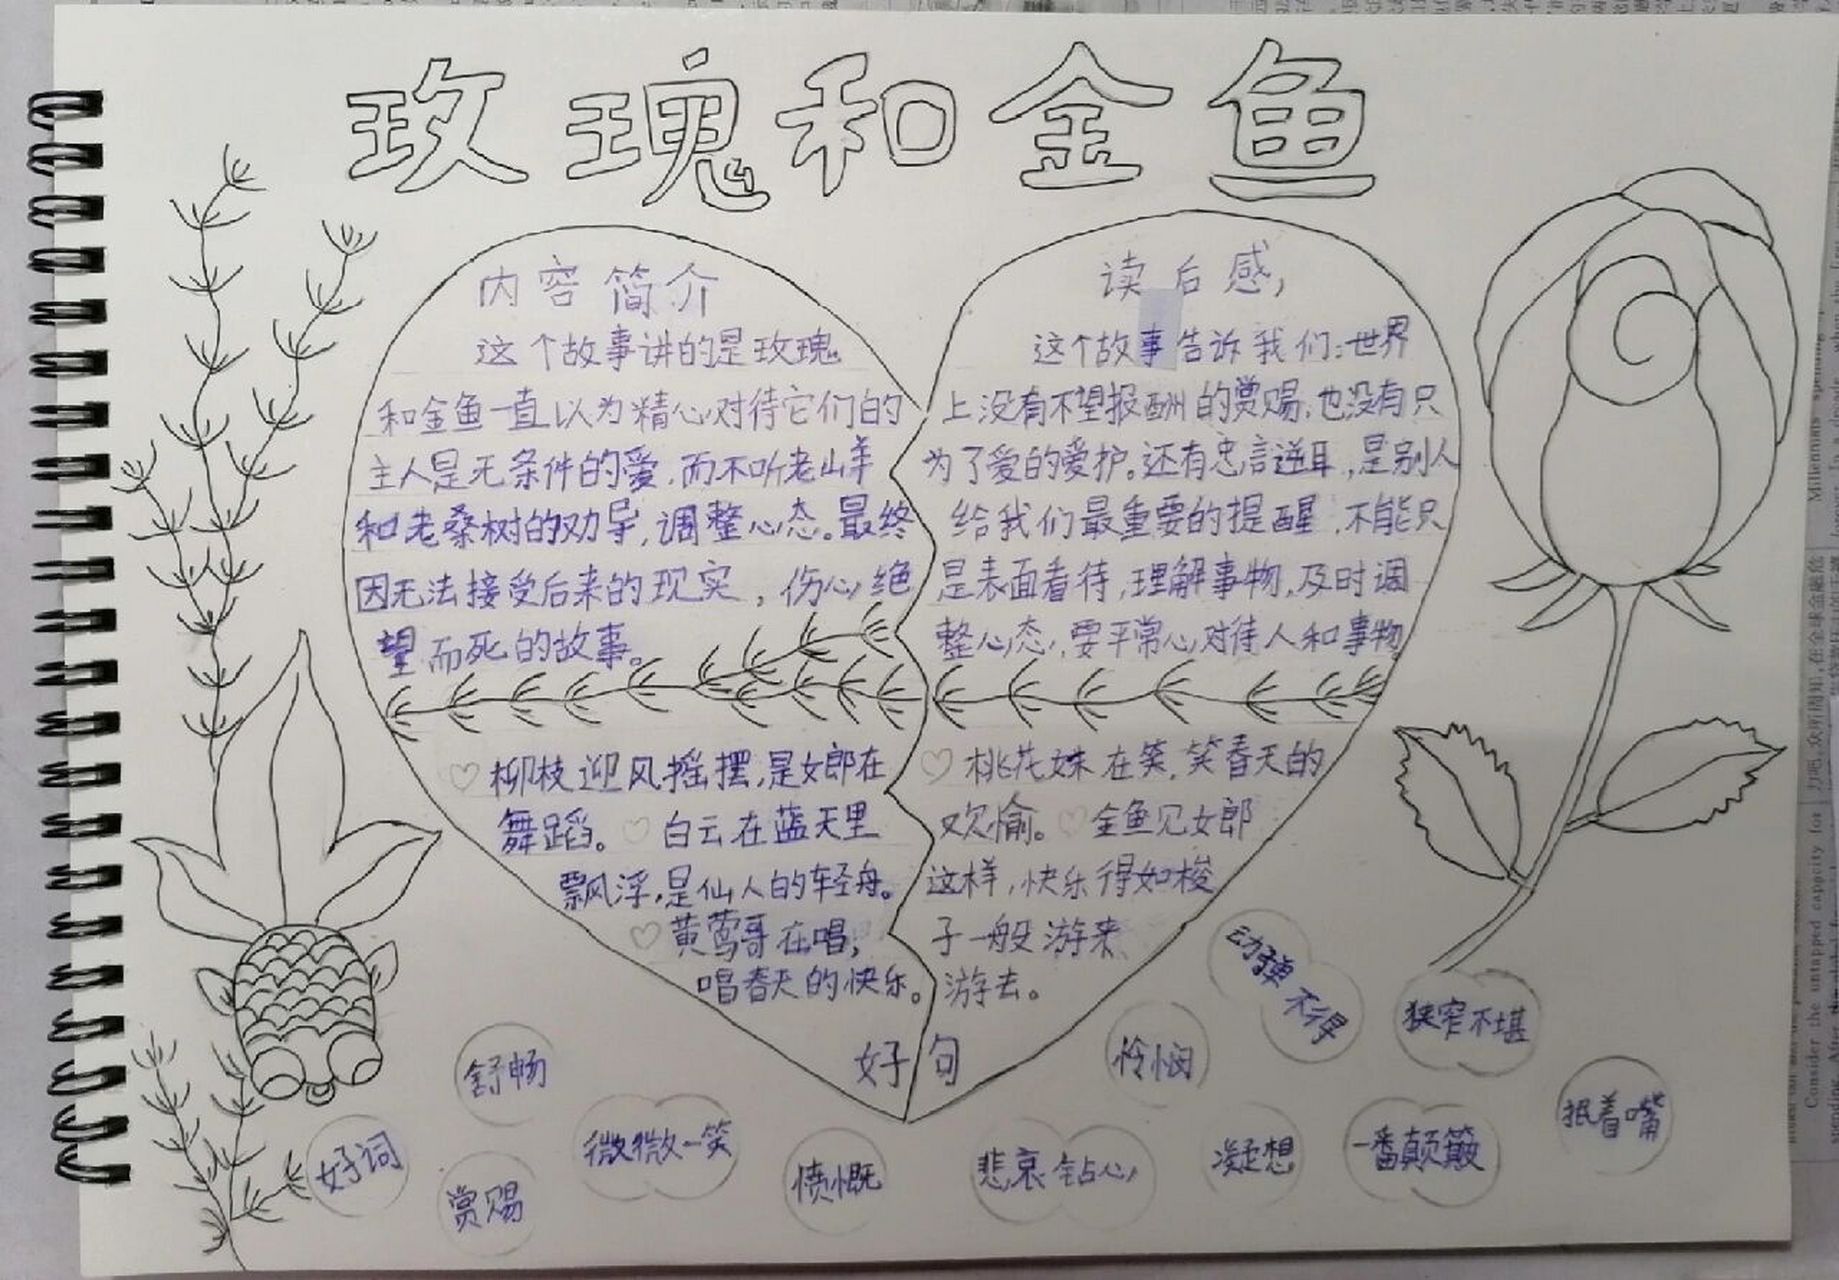 玫瑰和金鱼
内容简介
这个故事讲的是玫瑰
和金鱼一直以为精心对待它们的
主人是无条件的爱,而不听老山羊
和老桑树的劝导,调整心态。最终
因无法接受后来的现实,伤心绝
望而死的故事。
读后感,
这个故事告诉我们:世界
上没有不望报酬的赏赐,也没有只
为了爱的爱护。还有忠言逆耳,是别人
给我们最重要的提醒,不能只
是表面看待,理解事物,及时调
整心态,要平常心对待人和事物
♡柳枝迎风摇摆,是女郎在
舞蹈。♡白云在蓝天里
飘浮,是仙人的轻舟。
♡黄莺哥在唱,
唱春天的快乐。
♡桃花妹在笑,笑春天的
欢愉。♡金鱼见女郎
这样,快乐得如梭
子一般游来
游去。
好句
好词
舒畅
赏赐
微微一笑
愤慨
悲哀钻心
怜悯
动弹
不得
狭窄不堪
凝想
一番颠簸
抿着嘴